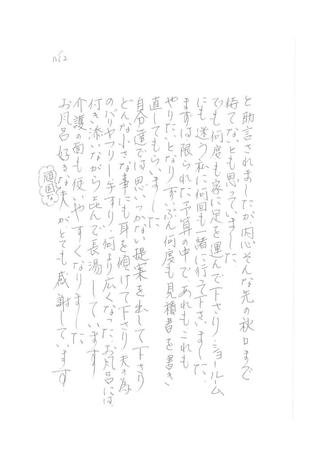 No.2
と助言されましたが、内心そんな先の秋口まで
待てないとも思っていました。
でも何度も家に足を運んで下さり、ショールーム
にも迷う私に何回も一緒に行って下さいました。
まずは限られた予算の中であれもこれも
やりたいとなりずいぶん何度も見積書を書き
直してもらいました。
自分達では思いつかない提案を出して下さり
どんな小さな事にも耳を傾けて下さり、夫の為
のバリヤフリー手すり、何より広くなったお風呂には
付き添いながら喜んで長湯しています。
介護の面も使いやすくなりました。
お風呂好きな夫がとても感謝しています。
頑固な